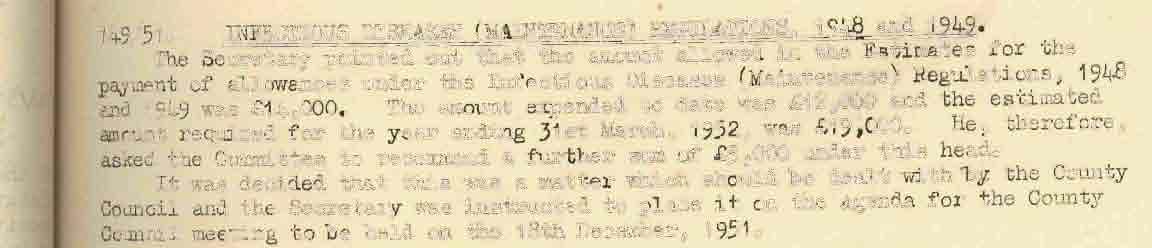 149/51. INFECTIOUS DISEASES (MAINTENANCE) REGULATIONS, 1948 and 1949.
The Secretary pointed out that the amount allowed in the Estimates for the
payment of allowances under the Infectious Diseases (Maintenance) Regulations, 1948
and 1949 was £14,000. The amount expended to date was £12,000 and the estimated
amount required for the year ending 31st March, 1952, was £19,000. He, therefore,
asked the Committee to recommend a further sum of £5,000 under this head.
It was decided that this was a matter which should be dealt with by the County
Council and the Secretary was instructed to place it on the agenda for the County
Council meeting to be held on the 18th December, 1951.